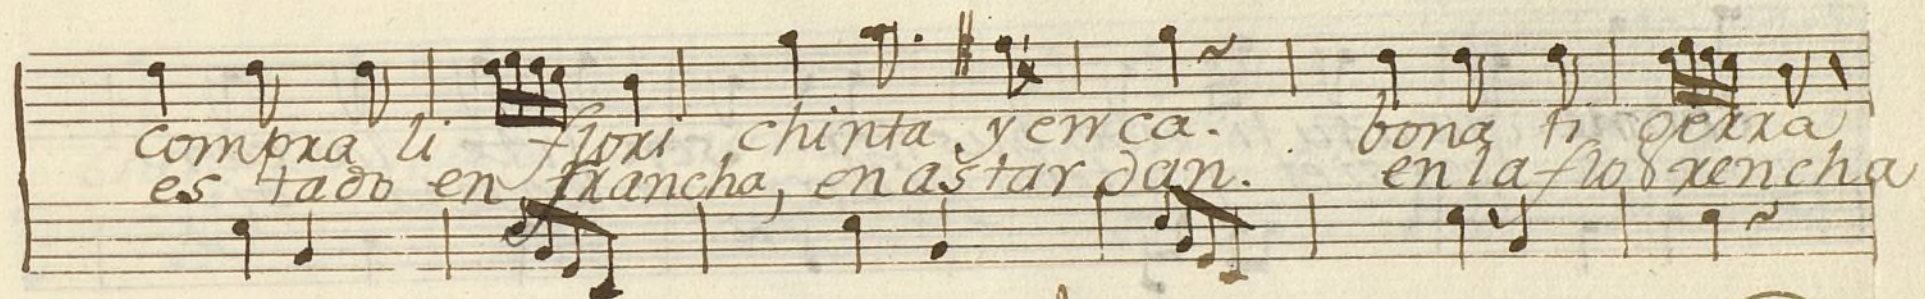 compra li flori chinta y en ca. bona ti gerra
es tado en francha, en astar dan. en la flo rencha